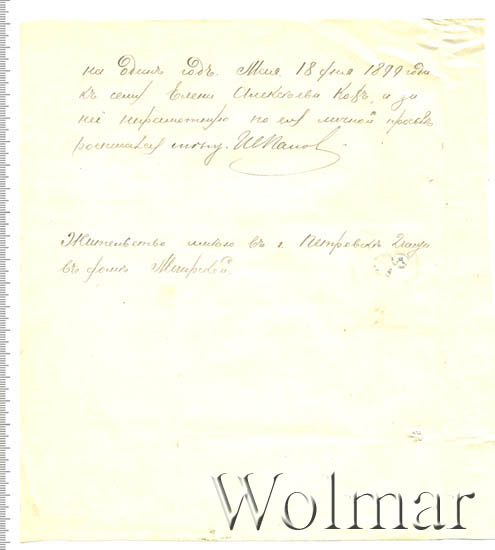 на Одинъ годъ. Мая 18 дня 1899 года
къ сему Елена а за
неё неграмотную по ея личной просьбѣ
росписался
Жительство имѣю въ г. Петровскѣ
въ домѣ
Wolmar